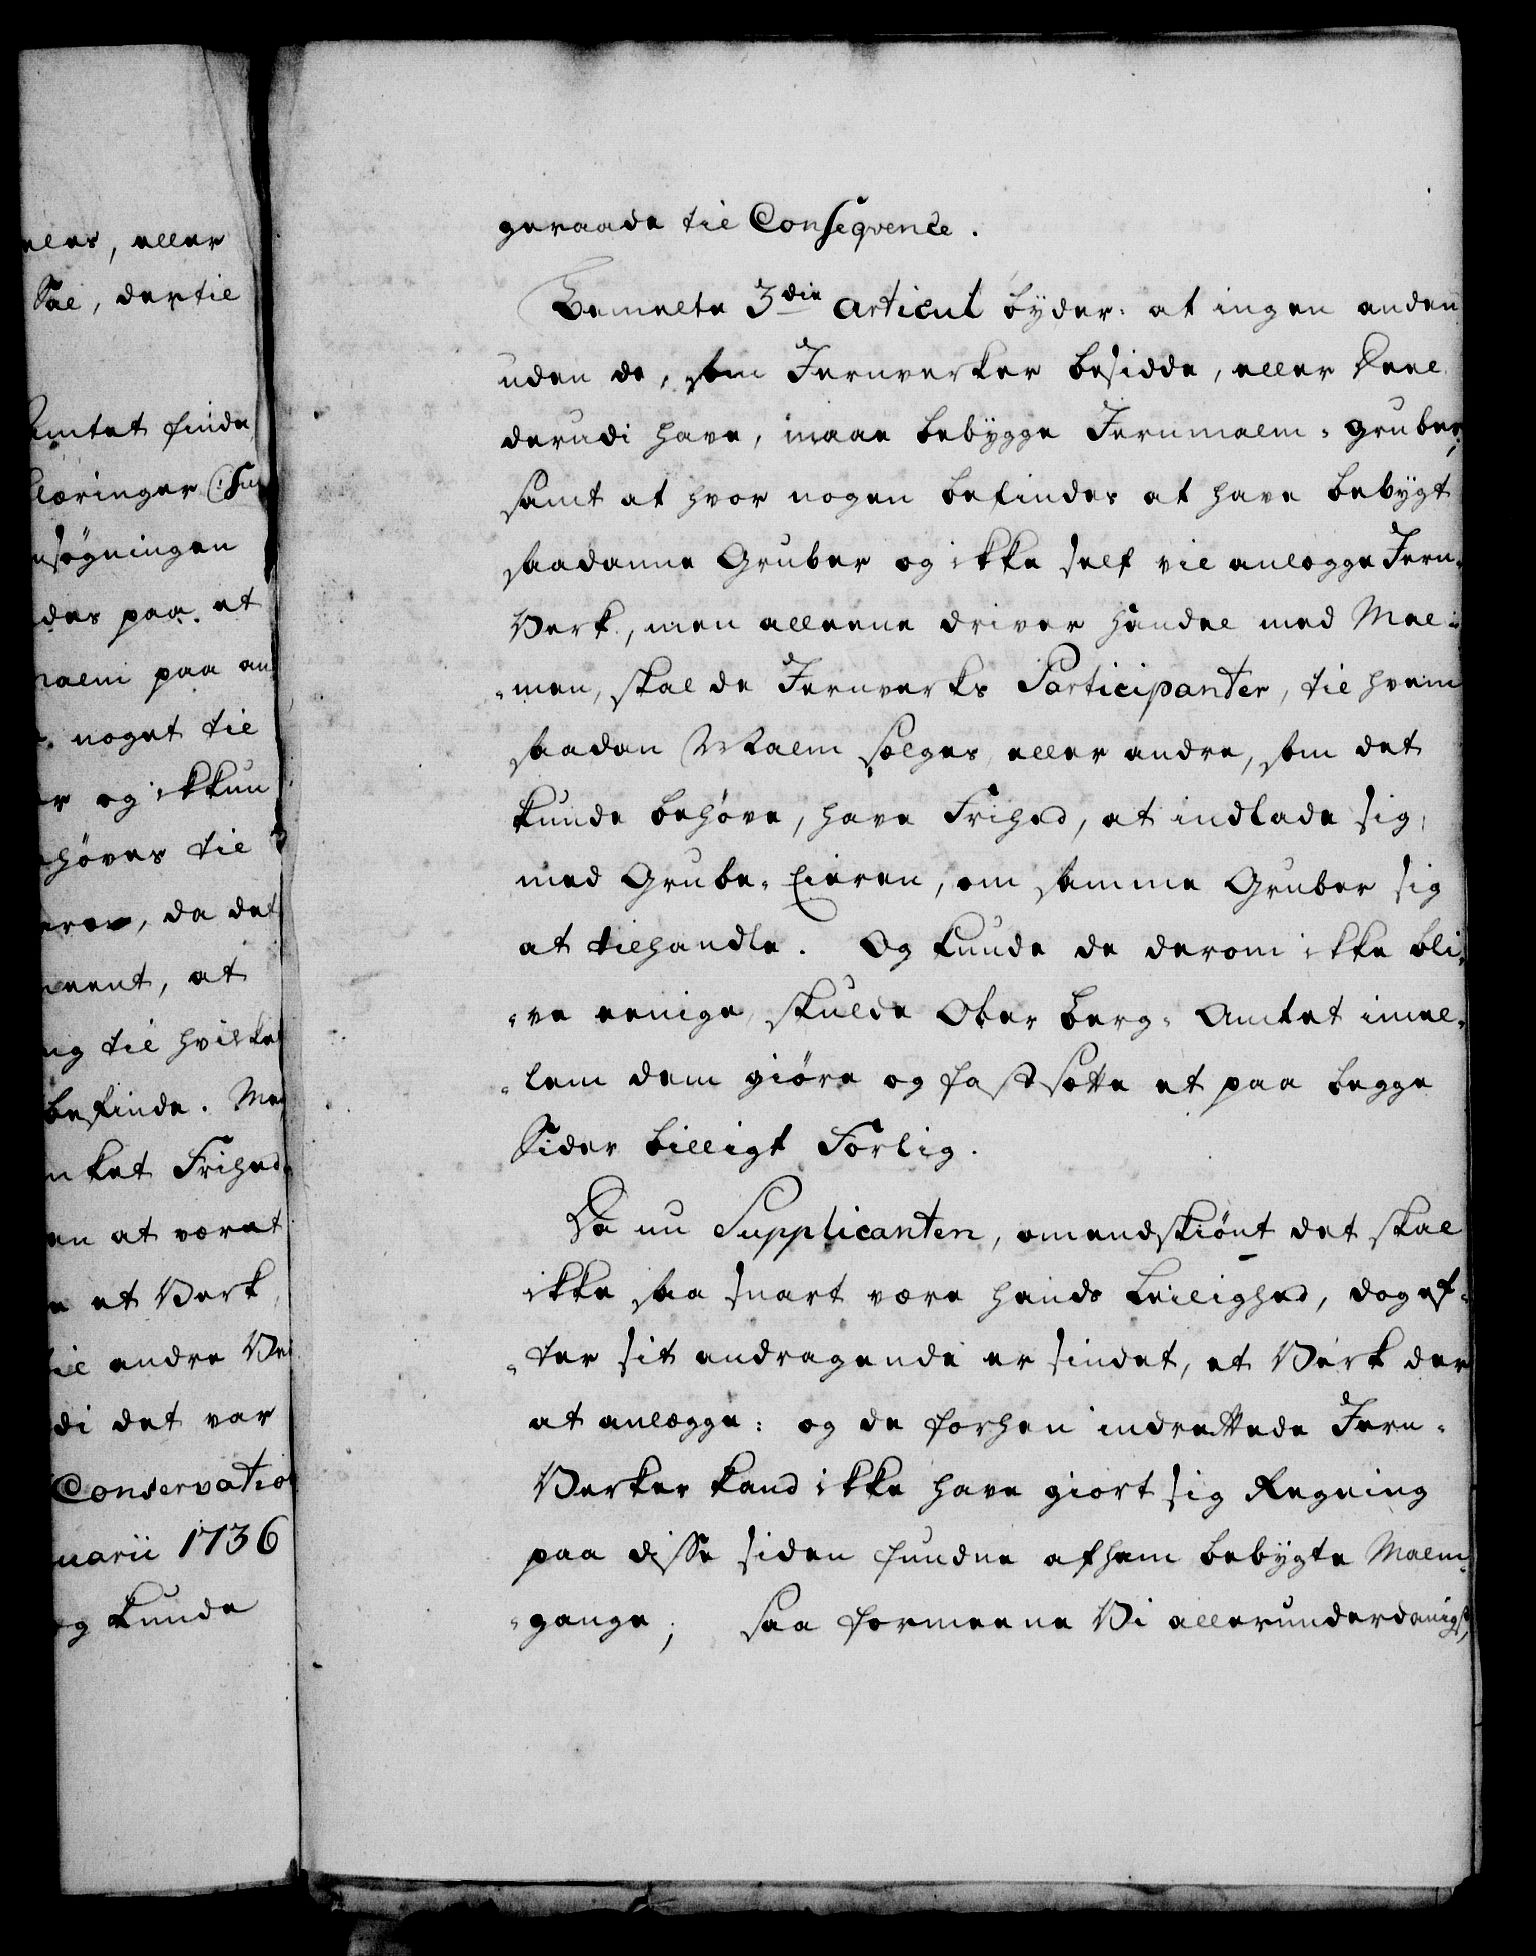 eles, eller
Sal, dertil
Amtet finde
læringer
nsøgningen
des paa et
malm paa an
noget til
er og ikkun
ehøves til
da det
meent, at
ng til hvilket
befinde. Me
nket Frihed
en at været
e et Verk
til andre
di det var
Conservatio
nuarii 1736
og kunde
geraade til Conseqvence.
Bemelte 3die Articul byder: at ingen anden
uden de, som Jernverker besidde, eller Deel
derudi have, maae bebygge Jernmalm-gruber,
samt at hvor nogen befindes at have bebygt
saadanne Gruber og ikke self vil anlægge Jern-
Verk, men alleene driver Handel med Mal-
-men, skal de Jernverks Participanter, til hvem
saadan Malm sælges, eller andre, som det
kunde behøve, have Frihed, at indlade sig
med Grube-Eieren, om samme Gruber sig
at tilhandle. Og kunde de derom ikke bli-
-ve eenige, skulde Ober Berg-Amtet imel-
-lem dem giøre og fastsætte et paa begge
Sider billigt Forlig.
Da nu Supplicanten, omendskiønt det skal
ikke saa snart være hands Leilighed, dog ef-
-ter sit andragende er sindet, et Verk der
at anlægge: og de forhen indrettede Jern-
Verker kand ikke have giort sig Regning
paa disse siden fundne af ham bebygte Malm-
-gange; saa formeene Vi allerunderdanigst,